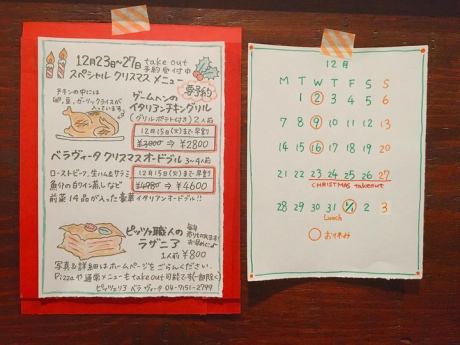 12月23日~27日 take out
予約受付中
スペシャル クリスマス メニュー
要予約
チキンの中には
卵、豆、ガーリックライスが
入っています。
ゲームヘンの
イタリアンチキングリル
(グリルポテト付き) 2人前
12月15日(火)まで早割
¥3000 → ¥2800
ベラヴィータ クリスマスオードブル 3~4人前
ローストビーフ、生ハム&サラミ
魚介の白ワイン蒸しなど
12月15日(火)まで早割
¥4980 → ¥4600
前菜14品が入った豪華イタリアンオードブル!!
ピッツァ職人の
ラザニア
1人前 ¥800
毎年
売り切れ
写真&詳細はホームページをごらんください。
Pizzaや通常メニューもtake out可能です(一部除く)
ピッツェリア ベラ ヴィータ 04-7151-2799
12月
M T W T F S S
1 2 3 4 5 6
7 8 9 10 11 12 13
14 15 16 17 18 19 20
21 22 23 24 25 26 27
CHRISTMAS takeout
28 29 30 31 1/1 2 3
Lunch
○お休み